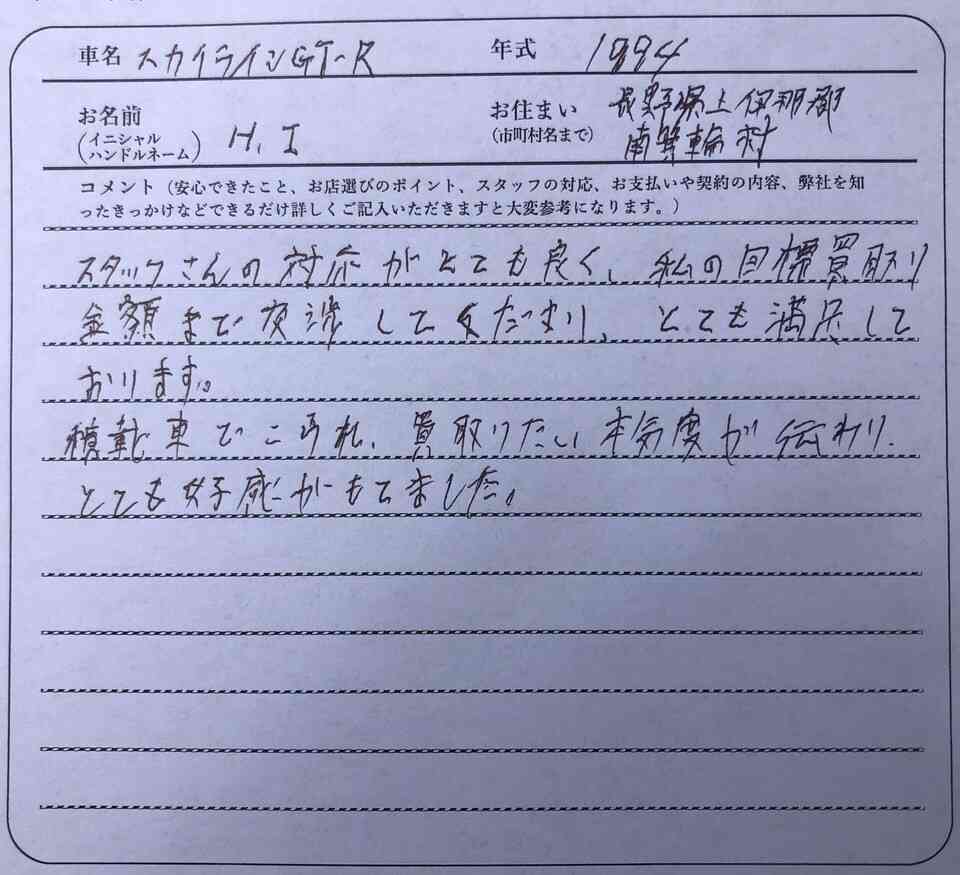 車名 スカイラインGT-R 年式 1994
お名前 (イニシャル ハンドルネーム) H.I お住まい (市町村名まで) 長野県上伊那郡
南箕輪村
コメント（安心できたこと、お店選びのポイント、スタッフの対応、お支払いや契約の内容、弊社を知
ったきっかけなどできるだけ詳しくご記入いただきますと大変参考になります。）
スタッフさんの対応がとても良く、私の目標買取り
金額まで交渉してくださり、とても満足して
おります。
積載車でこられ、買取りたい本気度が伝わり、
とても好感がもてました。